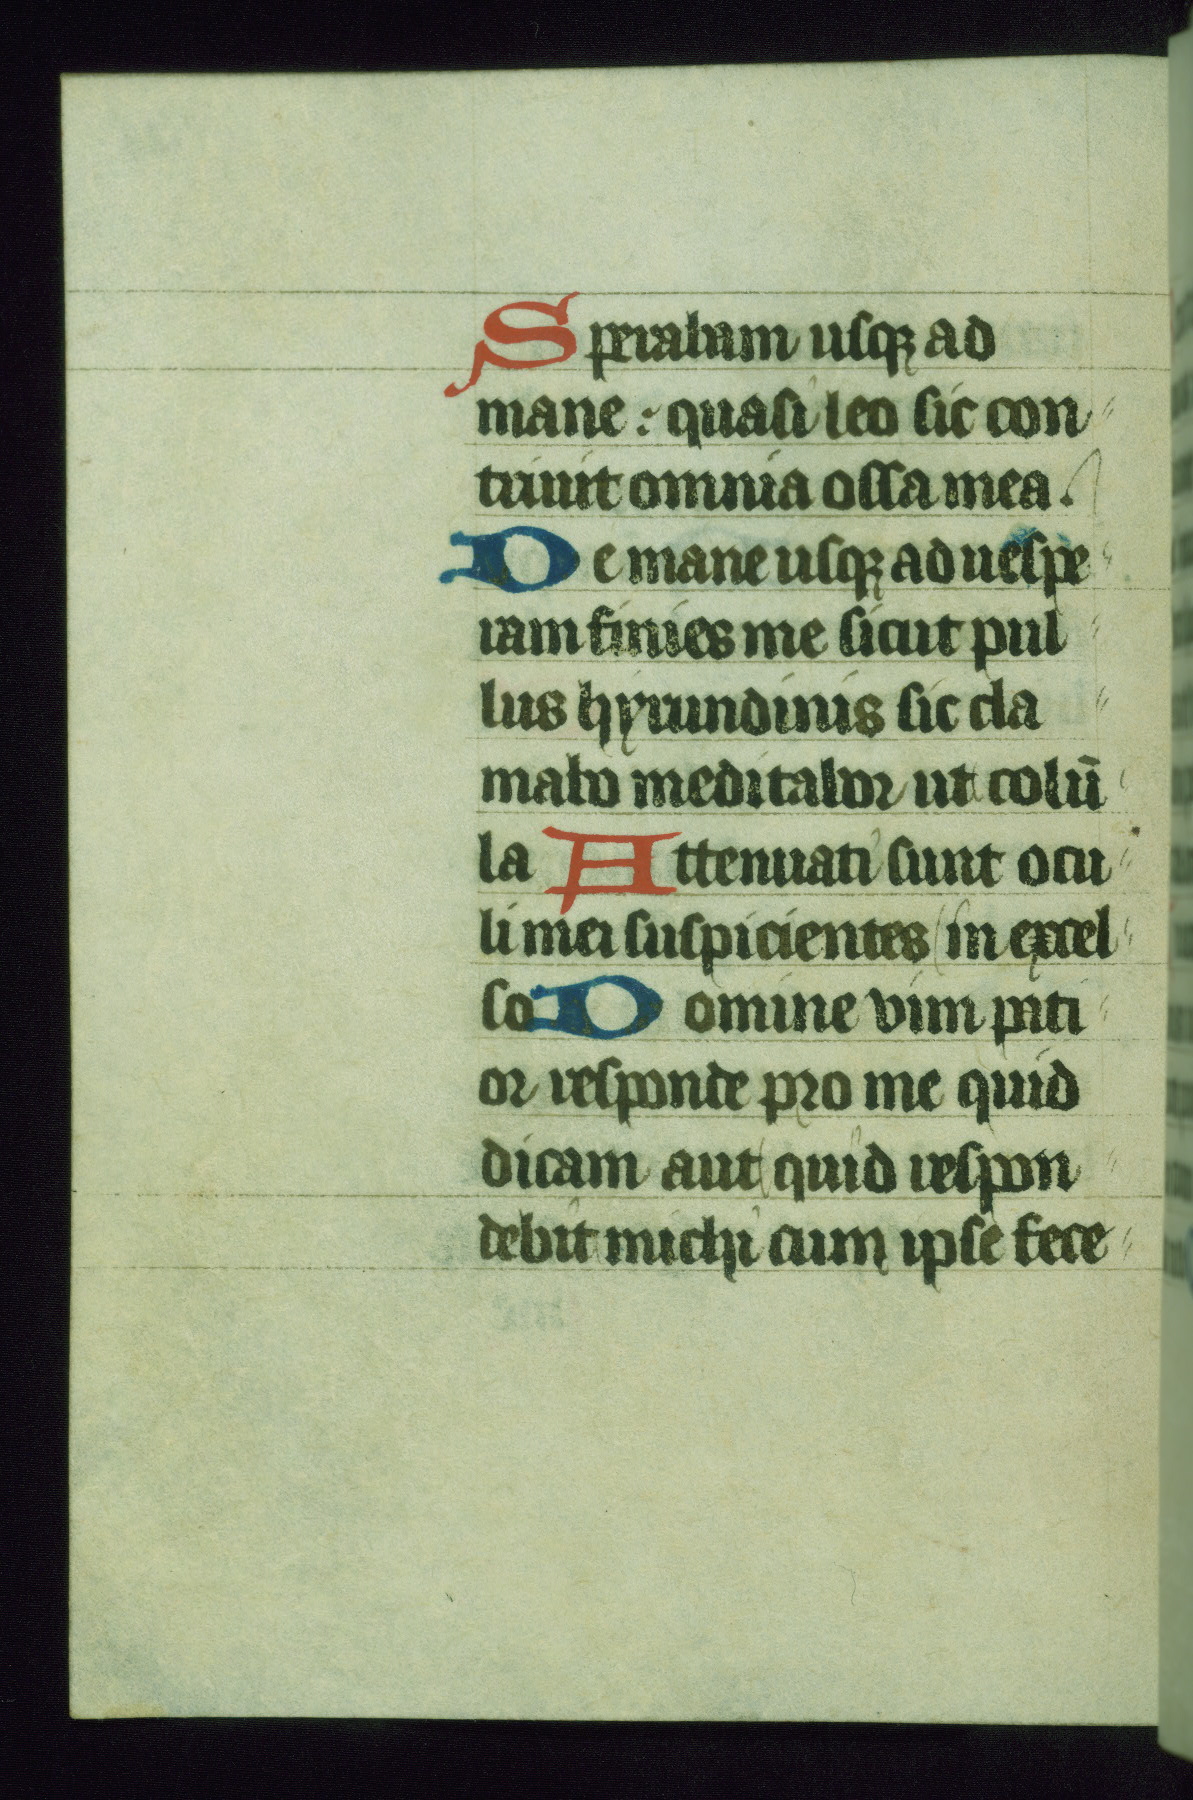 Sperabam usq; ad
mane : quasi leo sic con
triuit omnia ossa mea .
De mane usq; ad uespe
ram finies me sicut pul
lus hyrundinis sic cla
mabo meditabor ut colū
ba Attenuati sunt ocu
li mei suspicientes in excel
so Domine vim pati
or responde pro me quid
dicam aut quid respon
debit michi cum ipse fece